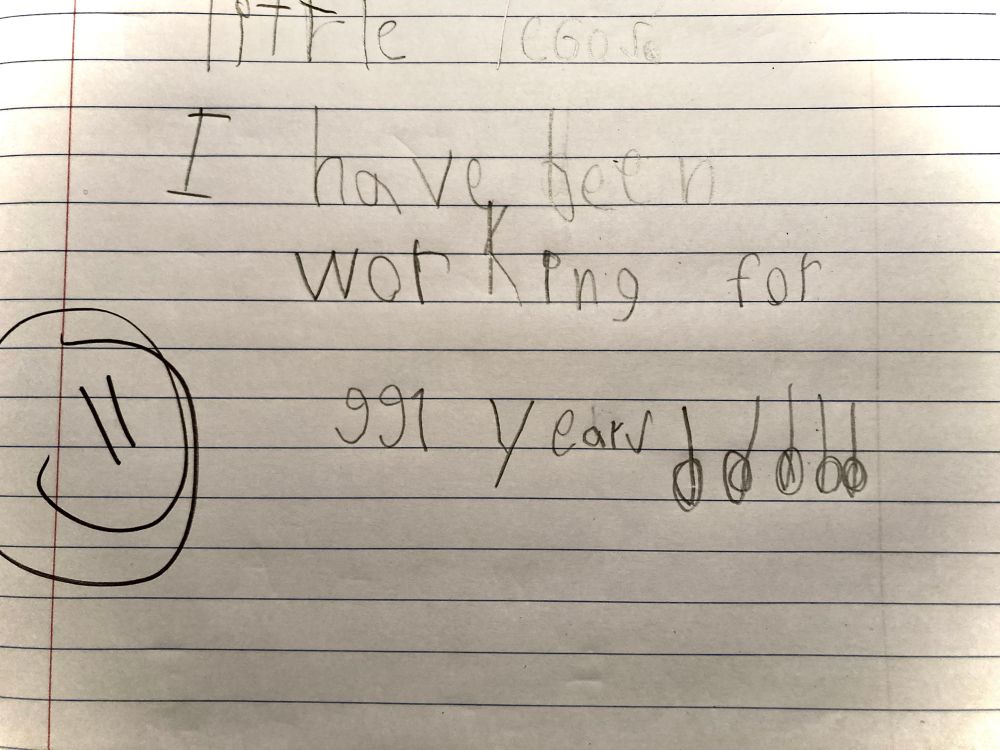 little
I have been
working for
991 years!!!!!